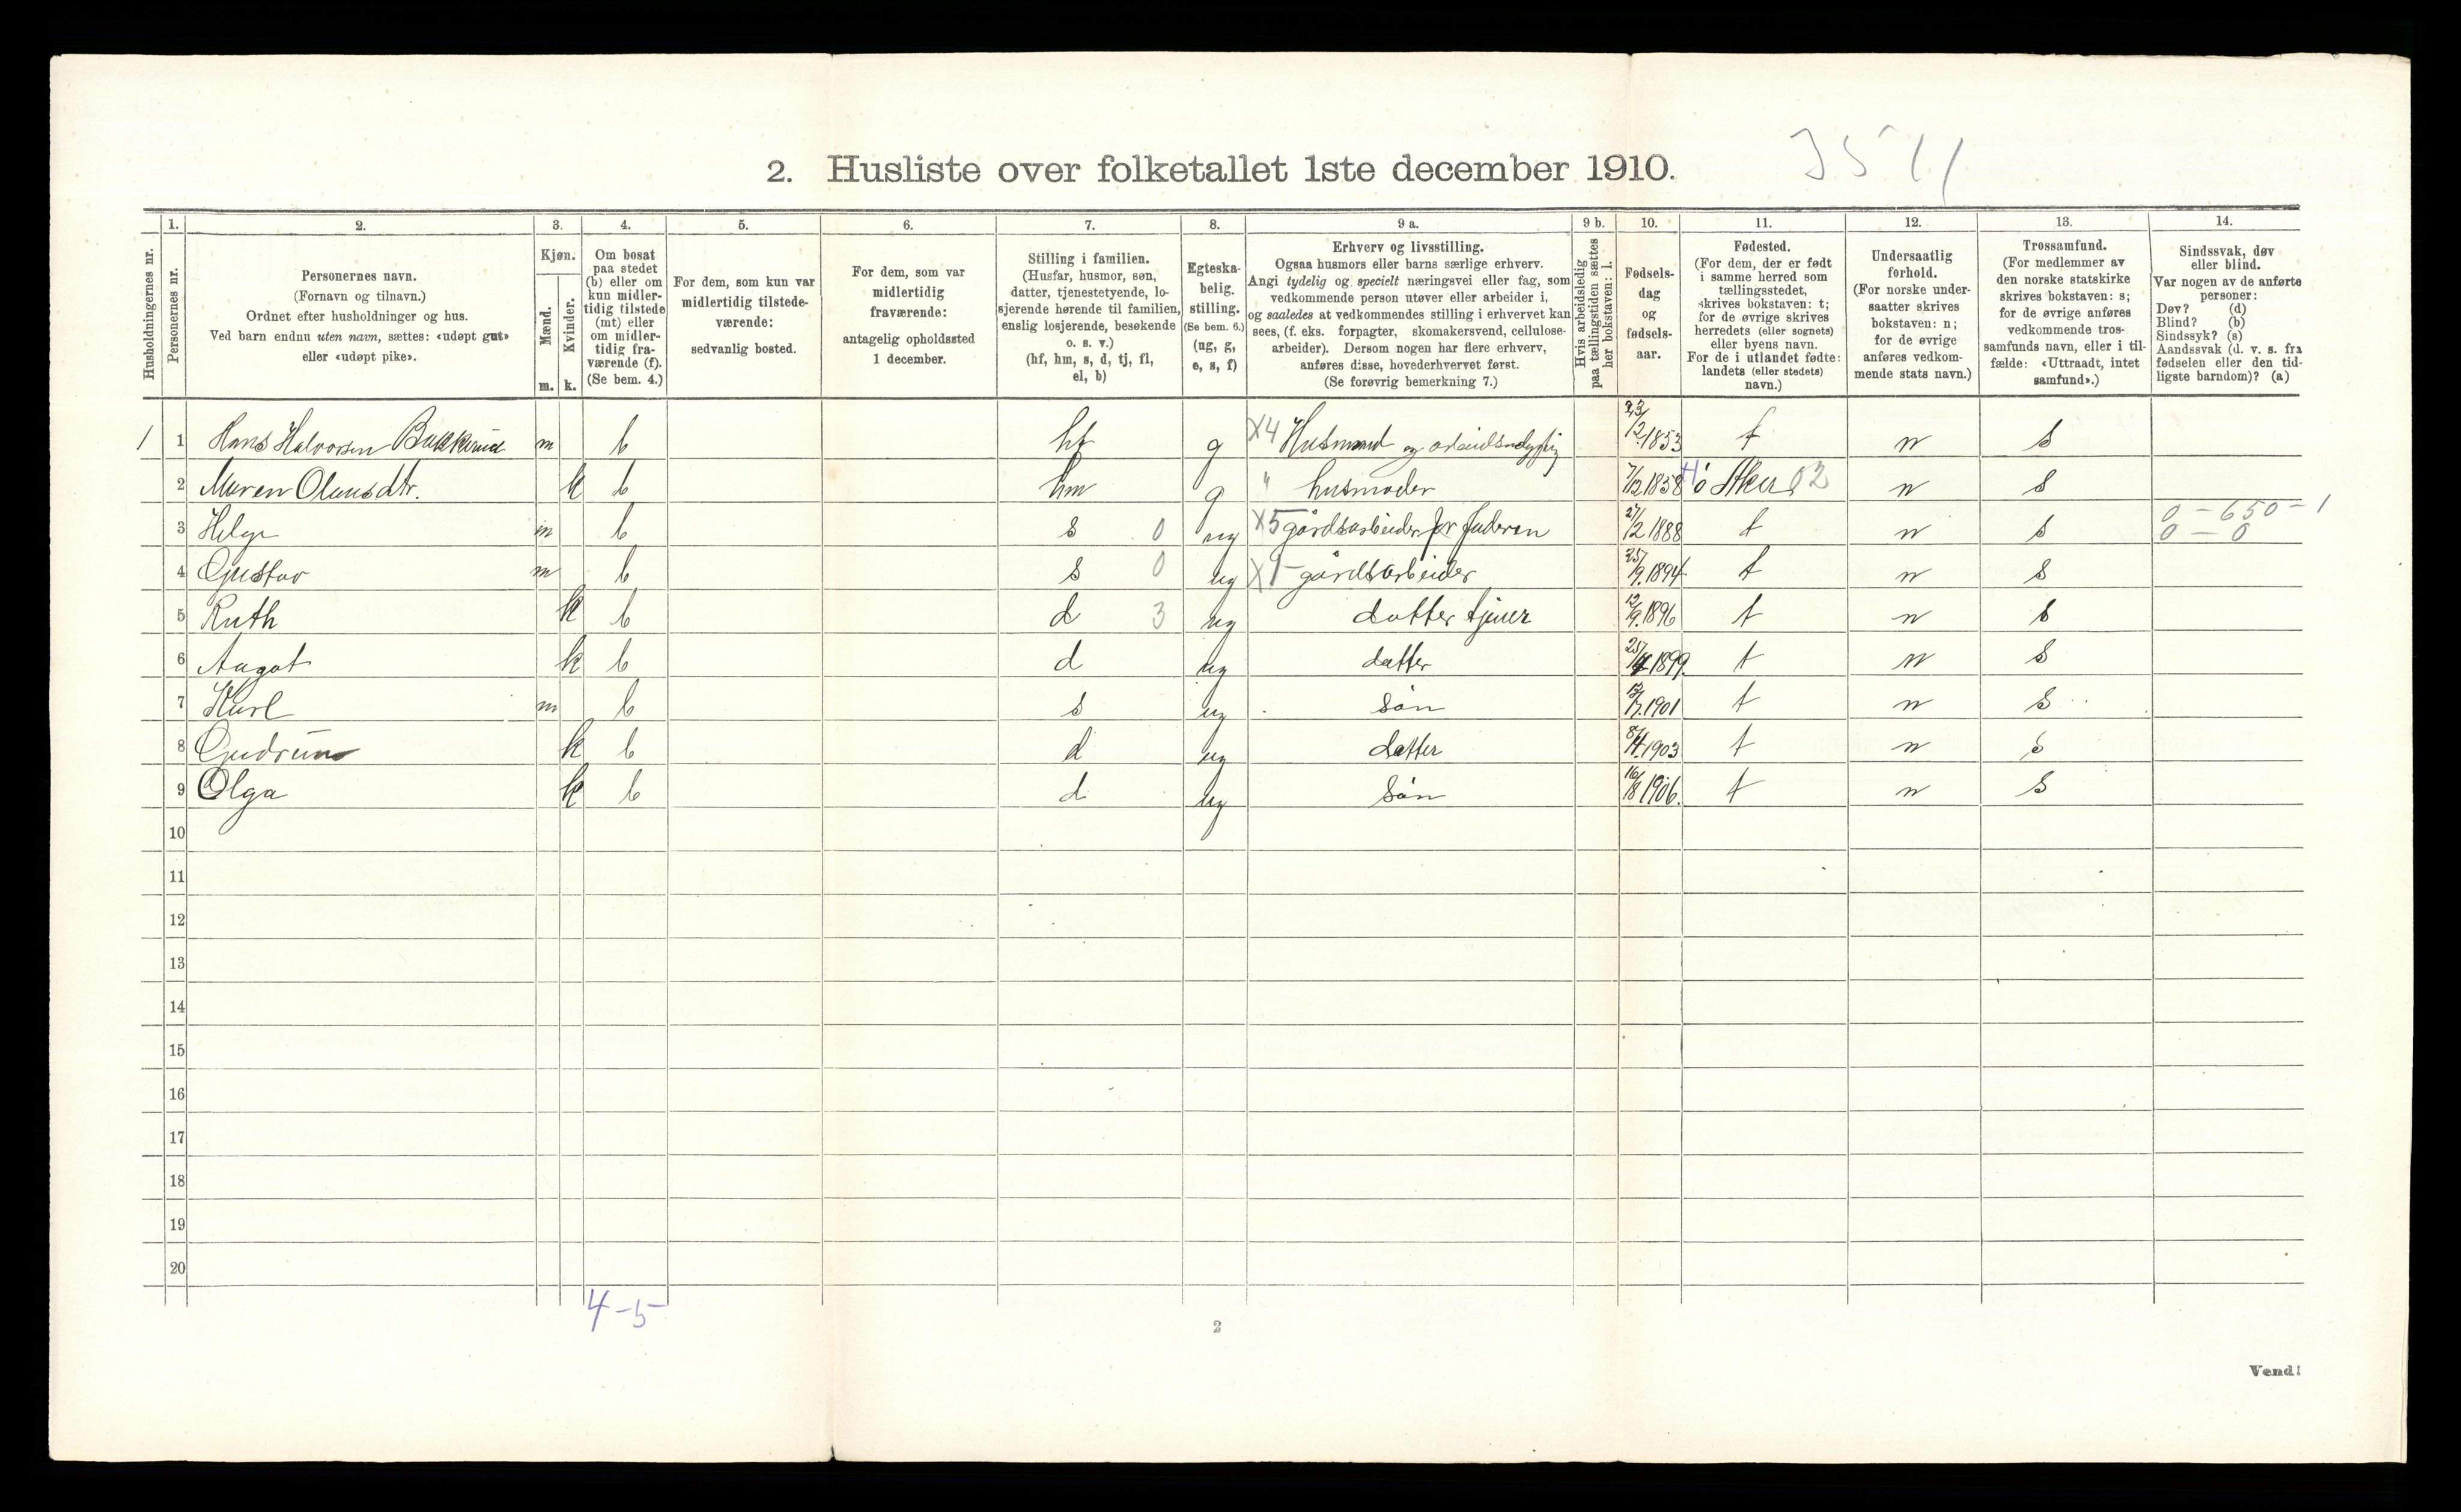 2. Husliste over folketallet 1ste december 1910.
1. 2. 3. 4. 5. 6. 7. 8. 9 a. 9 b. 10. 11. 12. 13. 14.
Husholdningernes nr.
Personernes nr.
Personernes navn.
(Fornavn og tilnavn.)
Ordnet efter husholdninger og hus.
Ved barn endnu uten navn, sættes: «udøpt gut»
eller «udøpt pike».
Kjøn.
Mænd.
Kvinder.
m. k.
Om bosat
paa stedet
(b) eller om
kun midler-
tidig tilstede
(mt) eller
om midler-
tidig fra-
værende (f).
(Se bem. 4.)
For dem, som kun var
midlertidig tilstede-
værende:
sedvanlig bosted.
For dem, som var
midlertidig
fraværende:
antagelig opholdssted
1 december.
Stilling i familien.
(Husfar, husmor, søn,
datter, tjenestetyende, lo-
sjerende hørende til familien,
enslig losjerende, besøkende
o. s. v.)
(hf, hm, s, d, tj, fl,
el, b)
Egteska-
belig.
stilling.
(Se bem. 6.)
(ug, g,
e, s, f)
Erhverv og livsstilling.
Ogsaa husmors eller barns særlige erhverv.
Angi tydelig og specielt næringsvei eller fag, som
vedkommende person utøver eller arbeider i,
og saaledes at vedkommendes stilling i erhvervet kan
sees, (f. eks. forpagter, skomakersvend, cellulose-
arbeider). Dersom nogen har flere erhverv,
anføres disse, hovederhvervet først.
(Se forøvrig bemerkning 7.)
Hvis arbeidsledig
paa tællingstiden sættes
her bokstaven: l.
Fødsels-
dag
og
fødsels-
aar.
Fødested.
(For dem, der er født
i samme herred som
tællingsstedet,
skrives bokstaven: t;
for de øvrige skrives
herredets (eller sognets)
eller byens navn.
For de i utlandet fødte:
landets (eller stedets)
navn.)
Undersaatlig
forhold.
(For norske under-
saatter skrives
bokstaven: n;
for de øvrige
anføres vedkom-
mende stats navn.)
Trossamfund.
(For medlemmer av
den norske statskirke
skrives bokstaven: s;
for de øvrige anføres
vedkommende tros-
samfunds navn, eller i til-
fælde: «Uttraadt, intet
samfund».)
Sindssvak, døv
eller blind.
Var nogen av de anførte
personer:
Døv? (d)
Blind? (b)
Sindssyk? (s)
Aandssvak (d. v. s. fra
fødselen eller den tid-
ligste barndom)? (a)
1 1 Hans Halvorsen m b hf g X4 Husmand og 23/2 1853 t n s
2 Maren Olausdtr. k b hm g " husmoder 7/2 1858 Aker 02 n s
3 Helge m b s 0 ug X5 gårdsarbeider for faderen 27/2 1888 t n s 0 - 650 - 1
0 - 0
4 Gustav m b s 0 ug gårdsarbeider 25/9. 1894 t n s
5 Ruth k b d 3 ug datter tjener 12/9. 1896 t n s
6 Aagot k b d ug datter 1899. t n s
7 Karl m b s ug søn 1901 t n s
8 Gudrun k b d ug datter 8/4 1903 t n s
9 Olga k b d ug søn 16/8 1906. t n s
10
11
12
13
14
15
16
17
18
19
20
4-5
2
Vend!